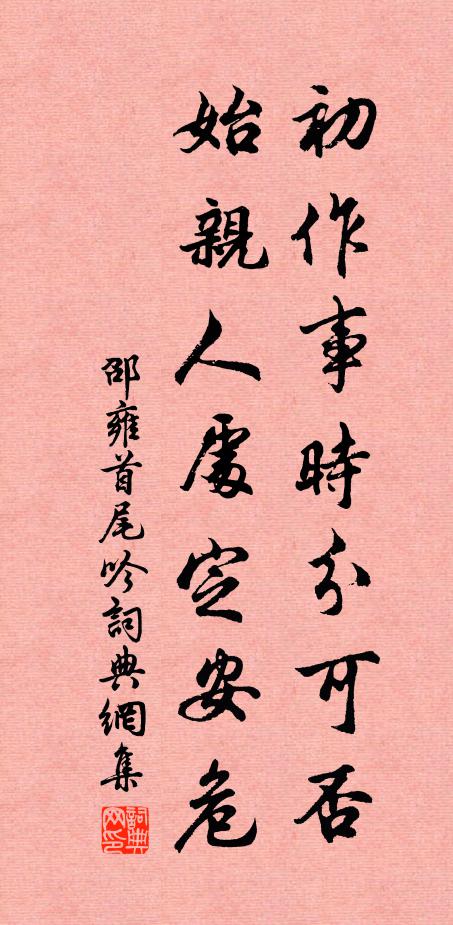 初作事時分可否
始親人處定安危
邵雍首尾吟詞典網集
詞典网印